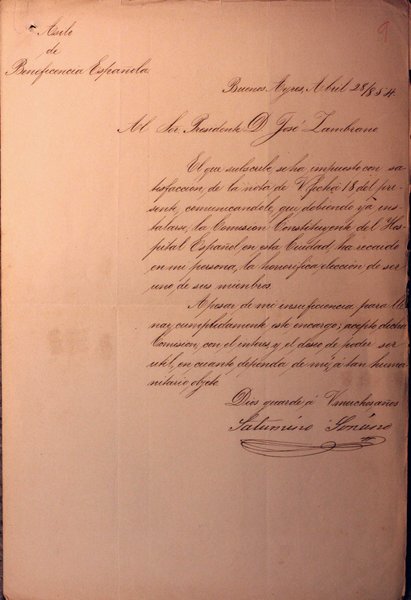 9
Asilo
de
Beneficencia Española
Buenos Ayres Abril 28/854
Al Sor Presidente D. José Zambrano
El que subscribe, se ha impuesto con sa-
tisfacción, de la nota de V. fecha 18 del pre-
sente, comunicandole, que debiendo yá ins-
talarse, la Comision Constituyente del Hos-
pital Español, en esta Ciudad, ha recaido
en mi persona, la honorifica eleccion de ser
uno de sus miembros.
Apesar de mi insuficiencia para lle-
nar, cumplidamente este encargo; acepto dicha
Comision, con el interes, y el deseo, de poder ser
util, en cuanto dependa de mi, á tan huma-
nitario objeto.
Dios guarde á V. muchos años
Saturnino